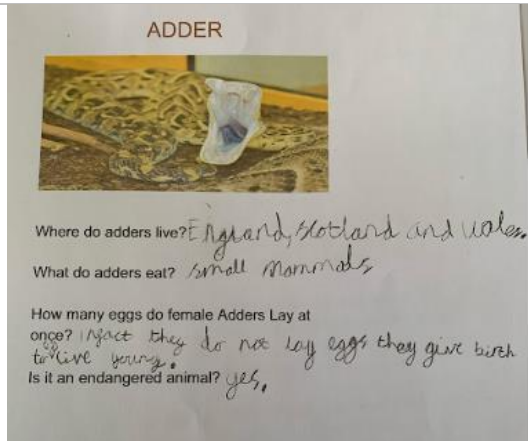 ADDER
Where do adders live? England, Scotland and wales.
What do adders eat? small mammals
How many eggs do female Adders Lay at
once? infact they do not lay eggs they give birth
to live young.
Is it an endangered animal? yes.